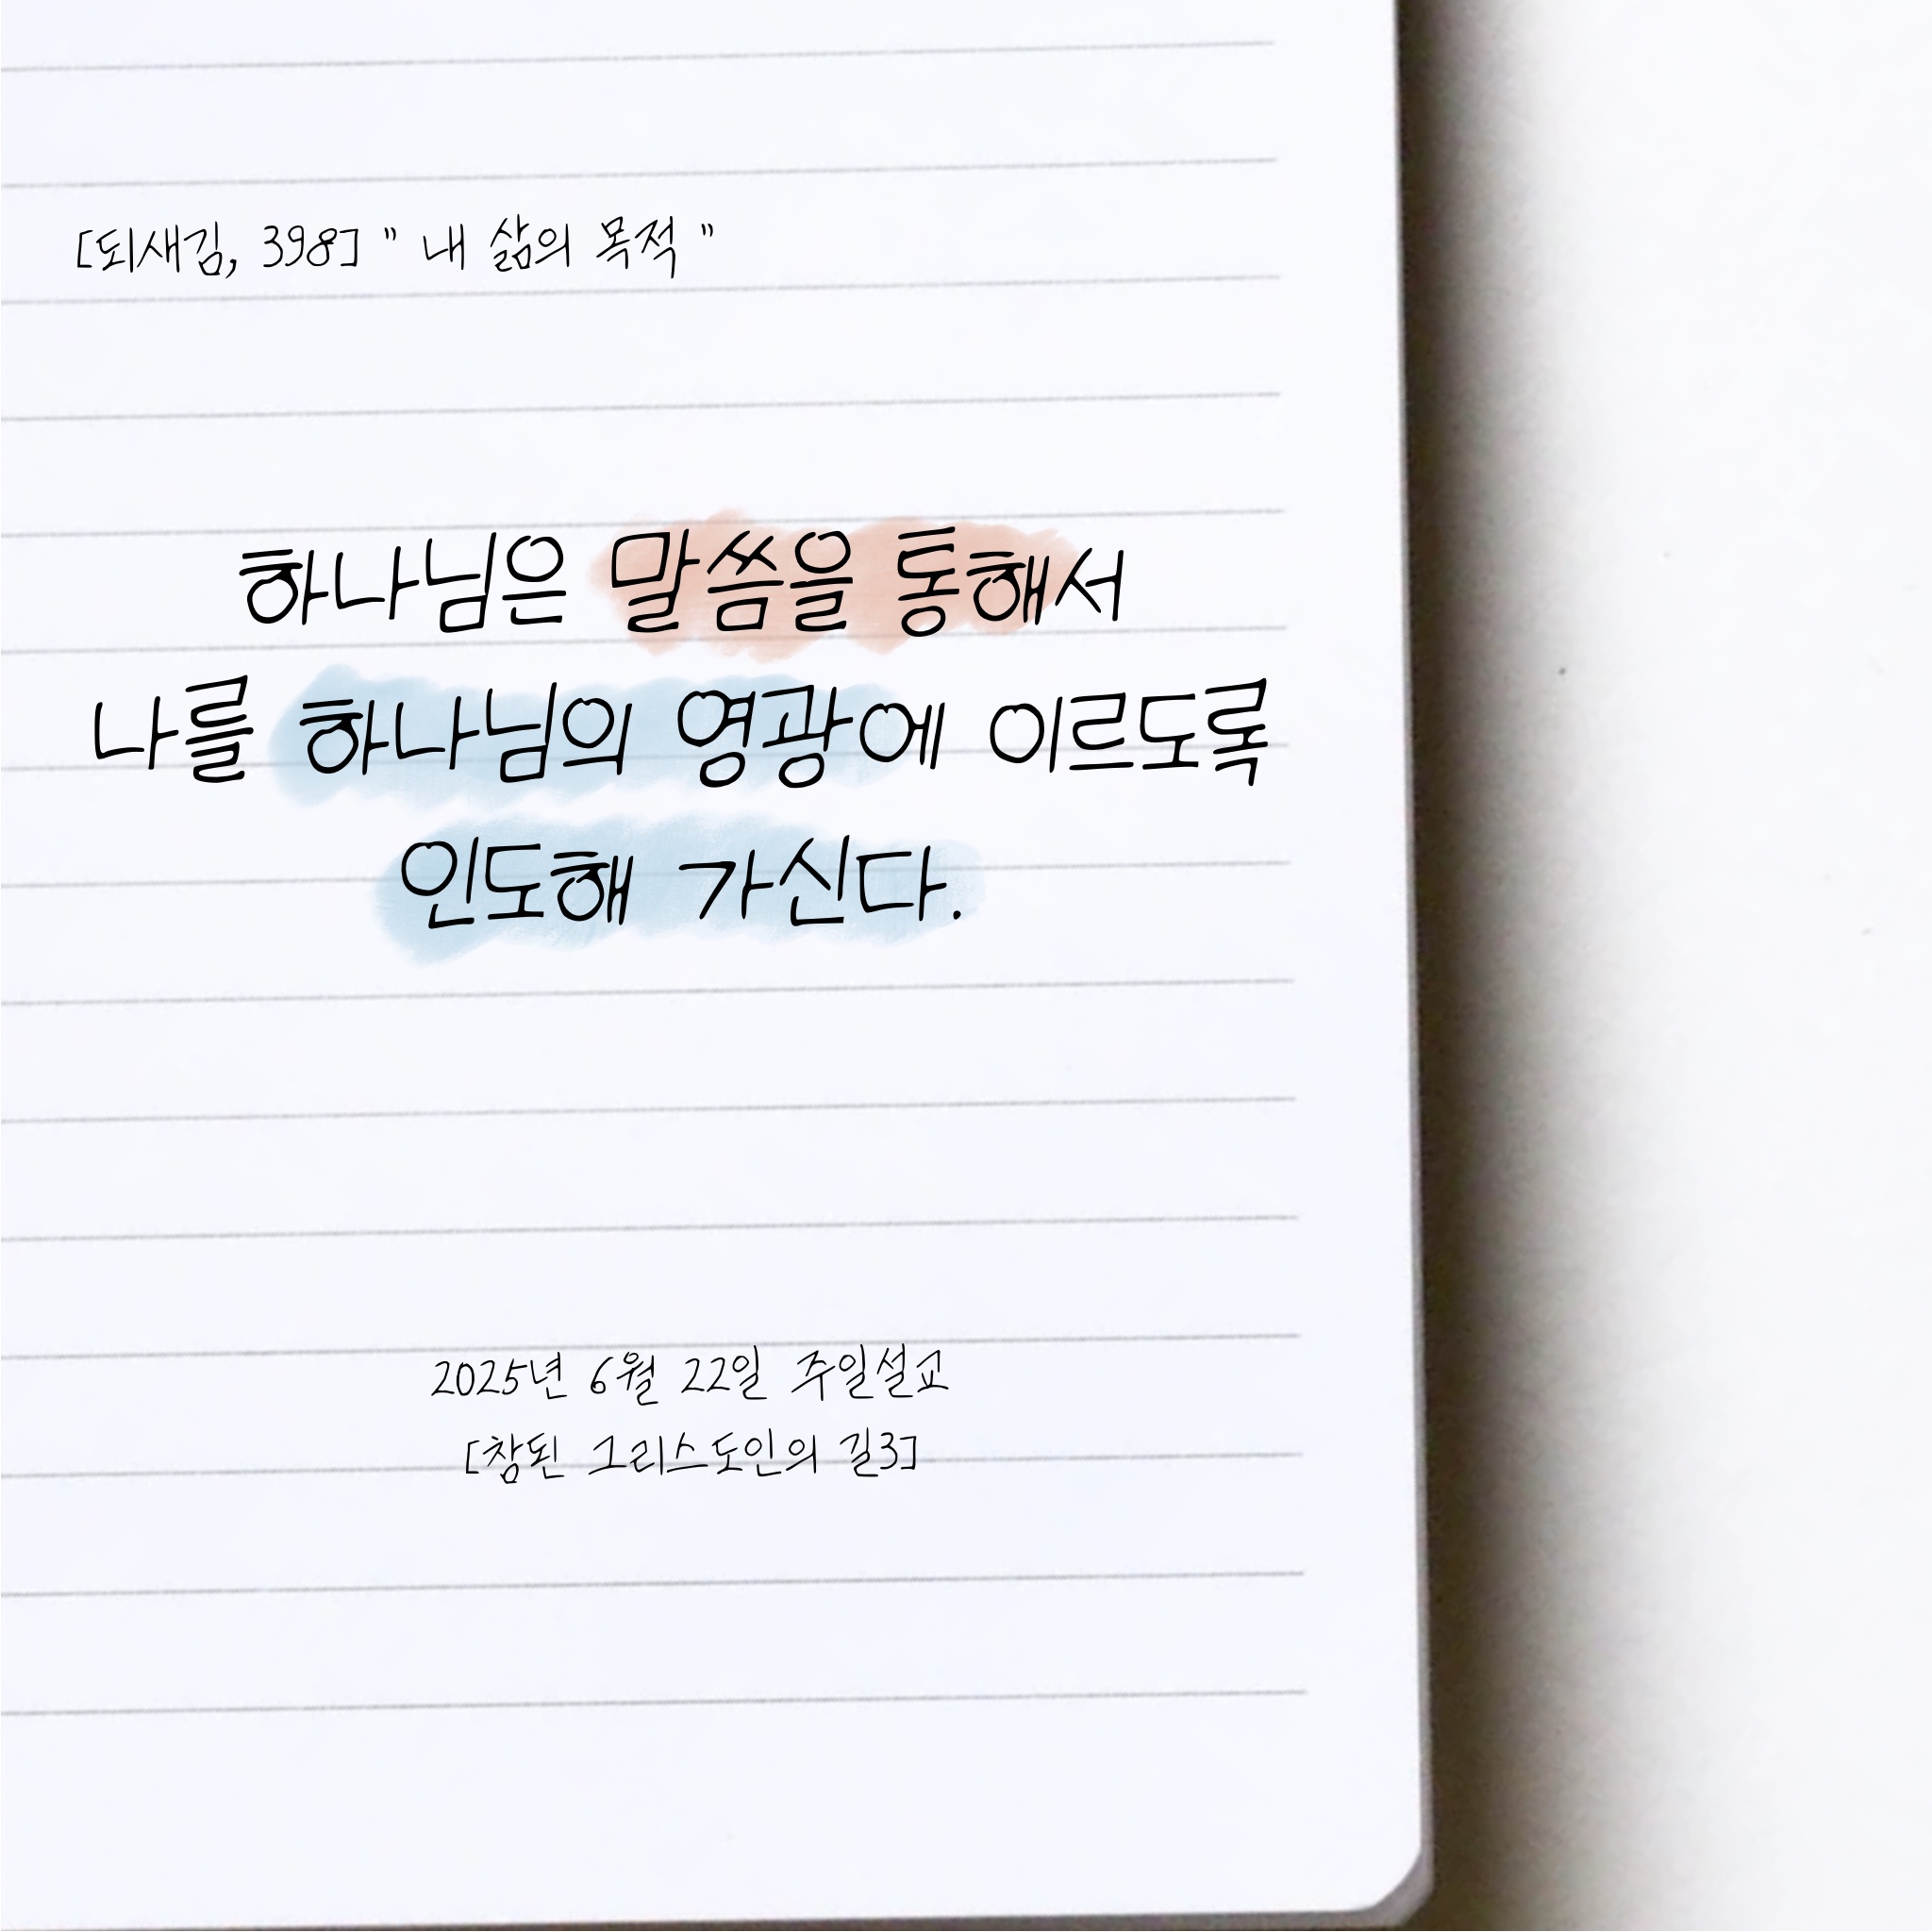 [되새김, 398] " 내 삶의 목적 "
하나님은 말씀을 통해서
나를 하나님의 영광에 이르도록
인도해 가신다.
2025년 6월 22일 주일설교
[참된 그리스도인의 길3]